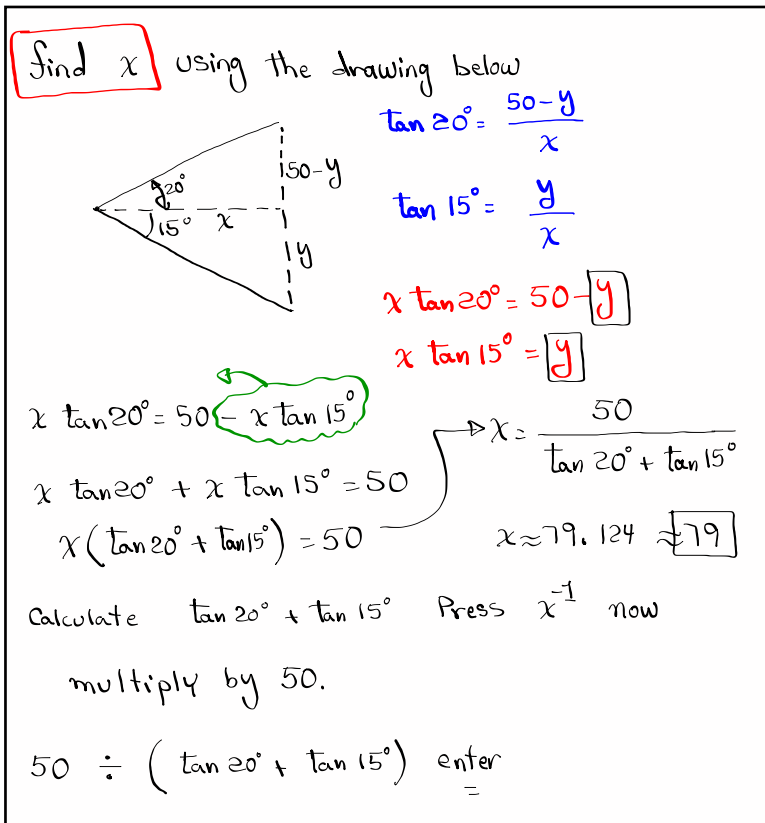 find x using the drawing below
20°
50-y
15°
x
y
tan 20° = (50-y)/x
tan 15° = y/x
x tan 20° = 50-y
x tan 15° = y
x tan 20° = 50 - x tan 15°
x tan 20° + x tan 15° = 50
x(tan 20° + tan 15°) = 50
x = 50/(tan 20° + tan 15°)
x ≈ 79.124 ≈ 79
Calculate tan 20° + tan 15° Press x⁻¹ now
multiply by 50.
50 ÷ (tan 20° + tan 15°) enter
=